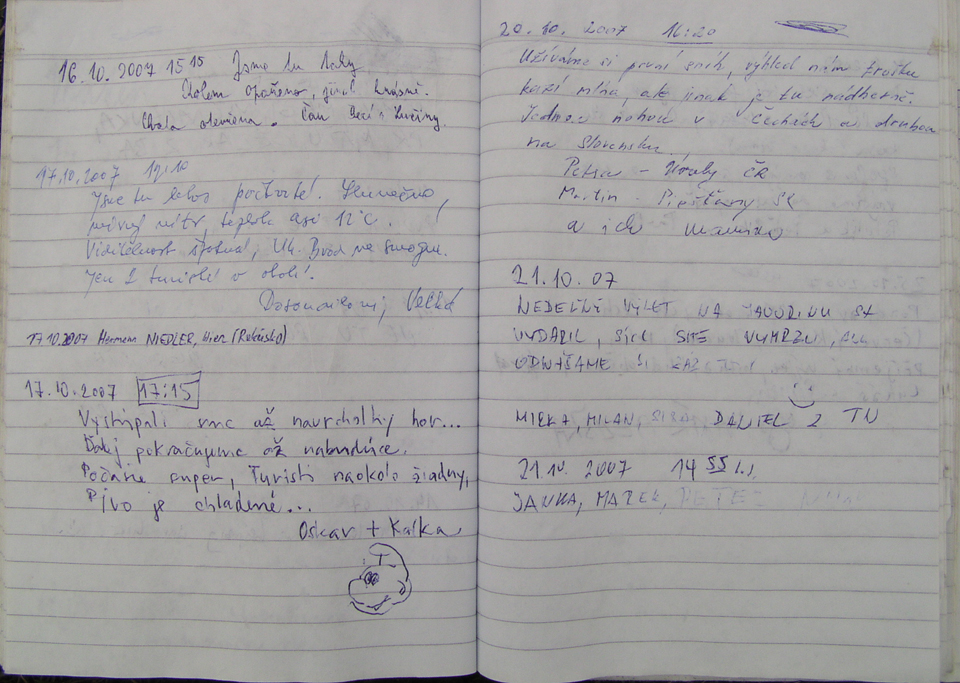 16.10.2007 15 15 Jsme tu
krásně.
otevřena.
17.10.2007 12:10
Jsme tu letos počtvrté! Slunečno,
mírný vítr, teplota asi 12°C.
Viditelnost špatná, Uh. Brod ve smogu.
Jen 2 turisté v okolí.
Velká
17.10.2007 Hermann NIEDLER, Wien (Rakúsko)
17.10.2007 17:15
Vystúpali sme až na vrcholky hor...
Ďalej pokračujeme až nabudúce.
Počasie super, Turisti naokolo žiadny,
Pivo je chladené...
Oskar + Katka
20.10.2007 16:20
Užíváme si první sníh, výhled nám trošku
kazí mlha, ale jinak je tu nádherně.
Jednou nohou v Čechách a druhou
na Slovensku.
Petra - ČR
Martin - Piešťany SK
a ich
21.10.07
NEDEĽNÝ VÝLET NA JAVORINU SA
VYDARIL, SÍCE SME VYMRZLI, ALE
MIRKA, MILAN, DANIEL Z TN
21.10.2007 14 55
JANKA, MAREK, PETER